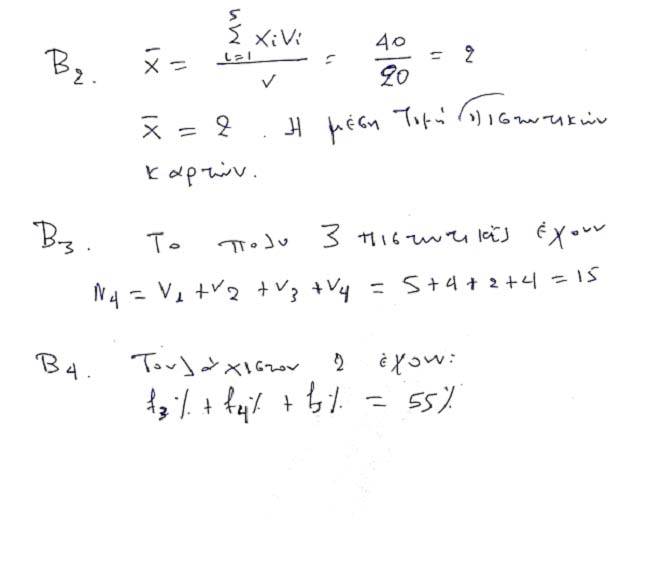 Β₂. x̄ = Σ⁵ᵢ₌₁ xᵢvᵢ / v = 40/20 = 2
x̄ = 2 . Η μέση τιμή πιστωτικών
καρτών.
Β₃. Το πολυ 3 πιστωτικές έχουν
N₄ = V₁ + V₂ + V₃ + V₄ = 5 + 4 + 2 + 4 = 15
Β₄. Τουλάχιστον 2 έχουν:
f₃% + f₄% + f₅% = 55%